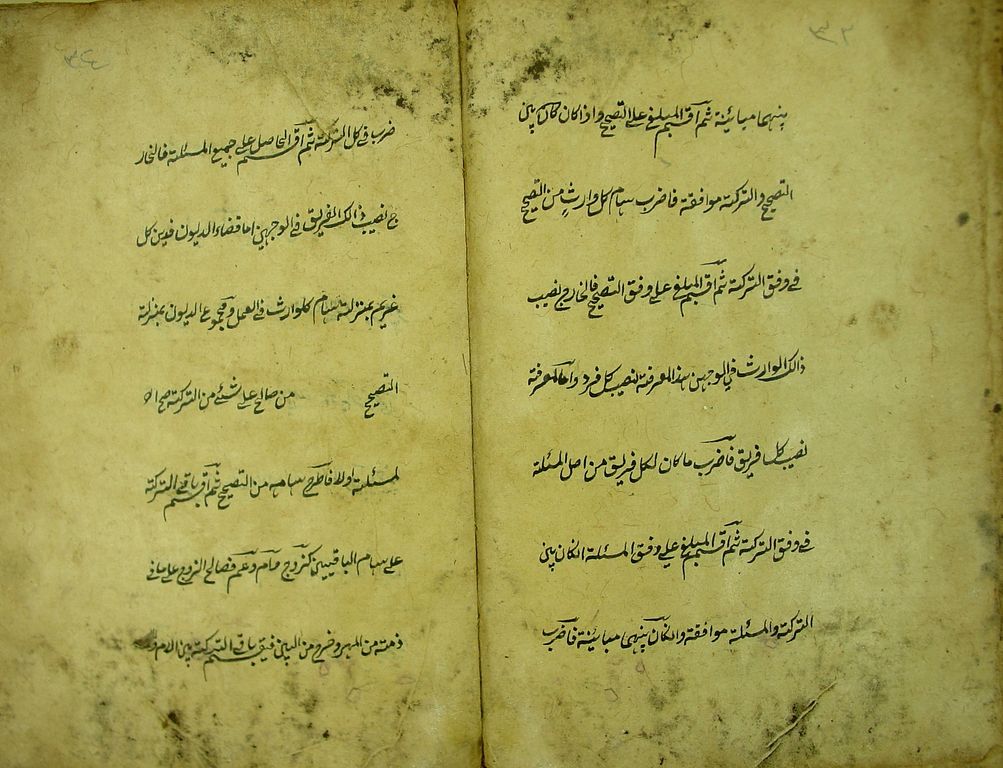 ٣٢
بينهما مباينة ثم اقسم المبلغ على التصحيح واذا كان كان بين
التصحيح والتركة موافقة فاضرب سهام كل وارث من التصحيح
فى وفق التركة ثم اقسم المبلغ على وفق التصحيح فالخارج نصيب
ذالك الوارث في الوجهين هذا المعرفة نصيب كل فرد واما المعرفة
نصيب كل فريق فاضرب ما كان لكل فريق من اصل المسئلة
فى وفق التركة ثم اقسم المبلغ على وفق المسئلة انكان بين
التركة والمسئلة موافقة وانكان بينهما مباينة فاضرب
ضرب فى كل التركة ثم اقسم الحاصل على جميع المسئلة فالخار
ج نصيب ذالك الفريق فى الوجهين اما قضاء الديون فدين كل
غريم بمنزلة سهام كلوارث فى العمل ومجموع الديون بمنزلة
التصحيح من صالح على شئ من التركة صح الا
لمسئلة اولا فاطرح سهامه من التصحيح ثم اقسم باقى التركة
على سهام الباقيين كزوج وام وعم فصالح الزوج على ما فى
ذمته من المهر وخرج من البين فيقسم باقى التركة بين الام و